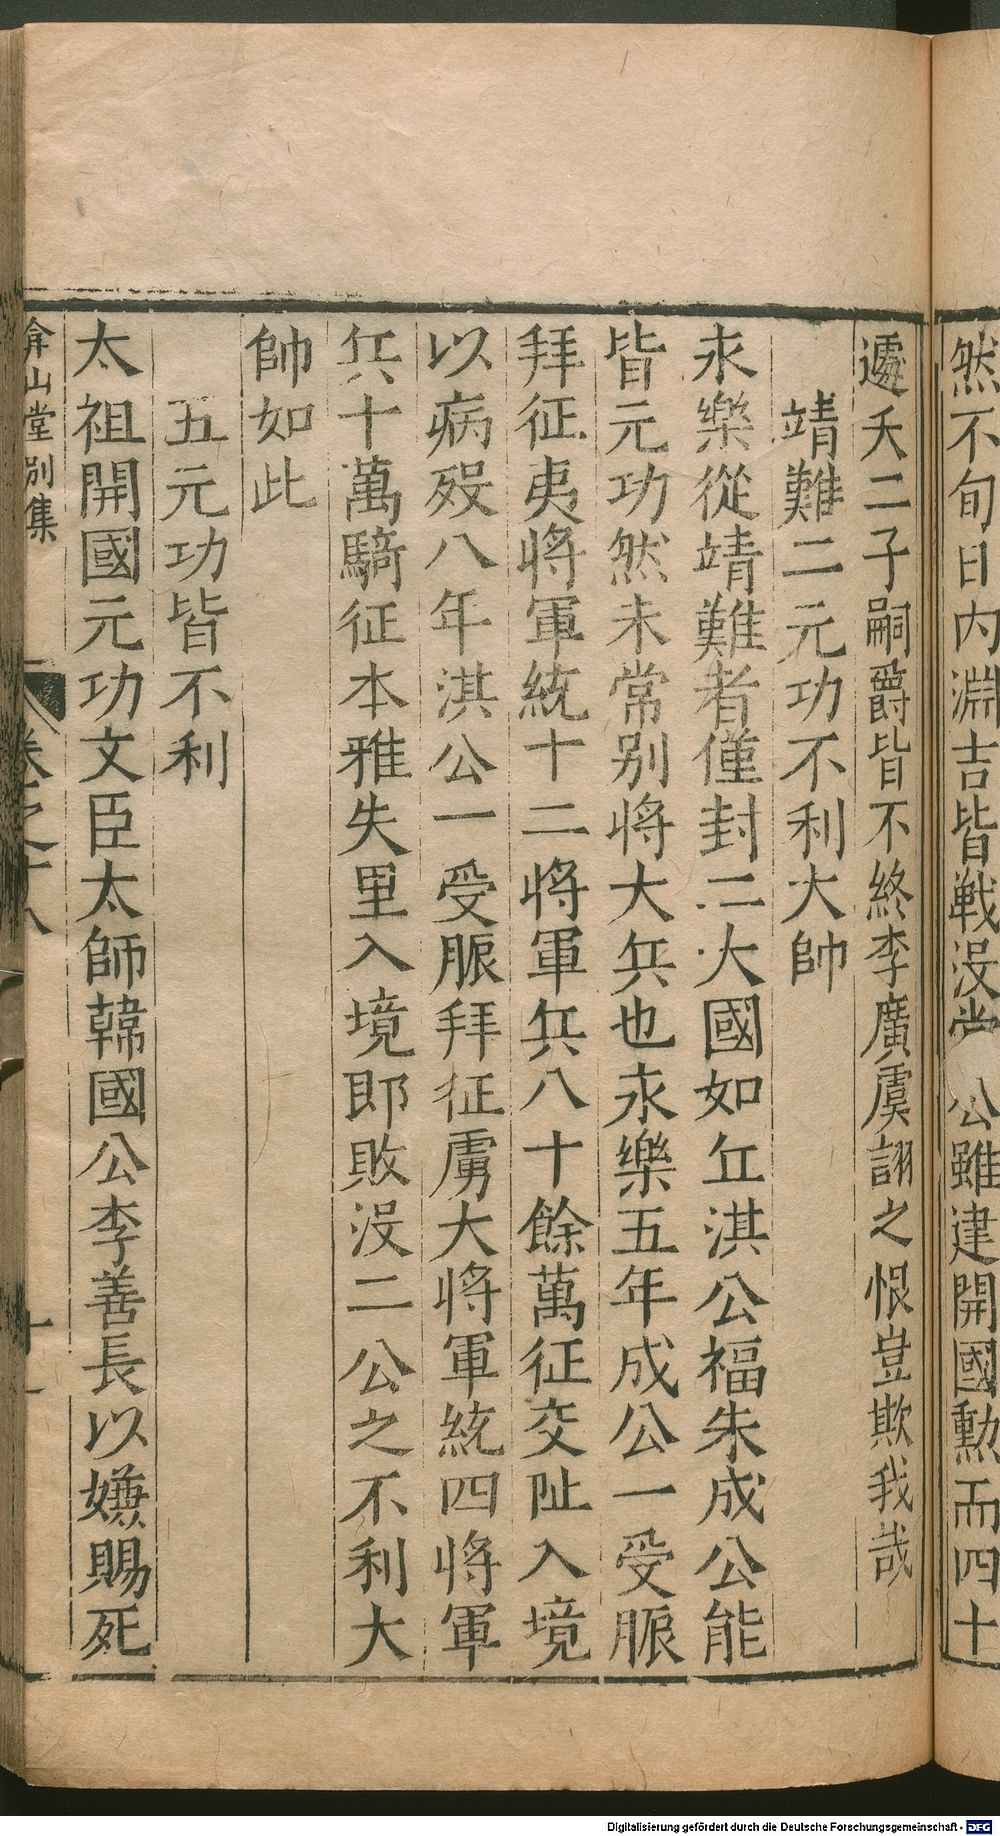 然不旬日內淵吉皆戰没 公雖建開國勳而四十
遽夭二子嗣爵皆不終李廣虞詡之恨豈欺我哉
靖難二元功不利大帥
永樂從靖難者僅封二大國如丘淇公福朱成公能
皆元功然未常別將大兵也永樂五年成公一受脤
拜征夷將軍統十二將軍兵八十餘萬征交阯入境
以病歿八年淇公一受脤拜征虜大將軍統四將軍
兵十萬騎征本雅失里入境即敗没二公之不利大
帥如此
五元功皆不利
太祖開國元功文臣太師韓國公李善長以嫌賜死
弇山堂別集 卷之十八 十一
Digitalisierung gefördert durch die Deutsche Forschungsgemeinschaft - DFG